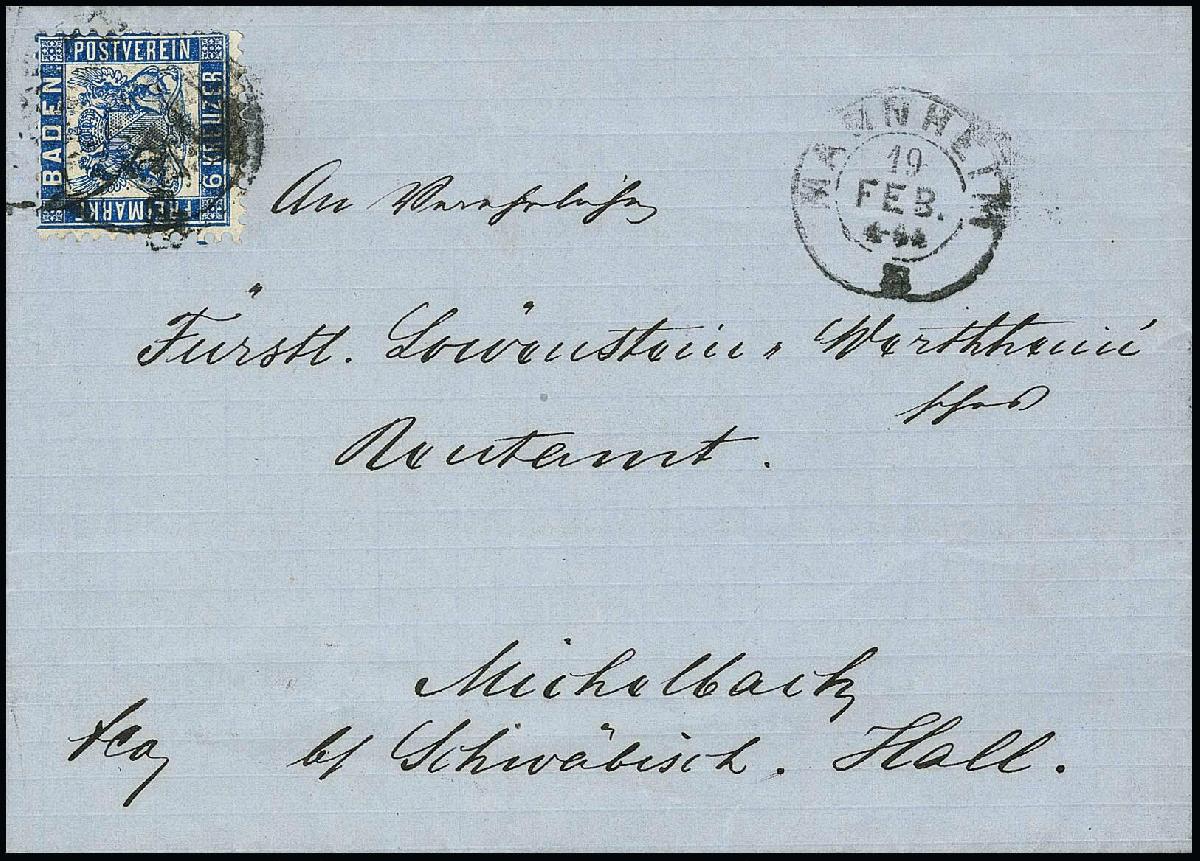 POSTVEREIN
BADEN
6 KREUZER
FREIMARKE
MANNHEIM
19
FEB.
An Verehrliches
Fürstl. Löwenstein-Wertheim'
sches
Rentamt.
Michelbach
fco
b/ Schwäbisch. Hall.